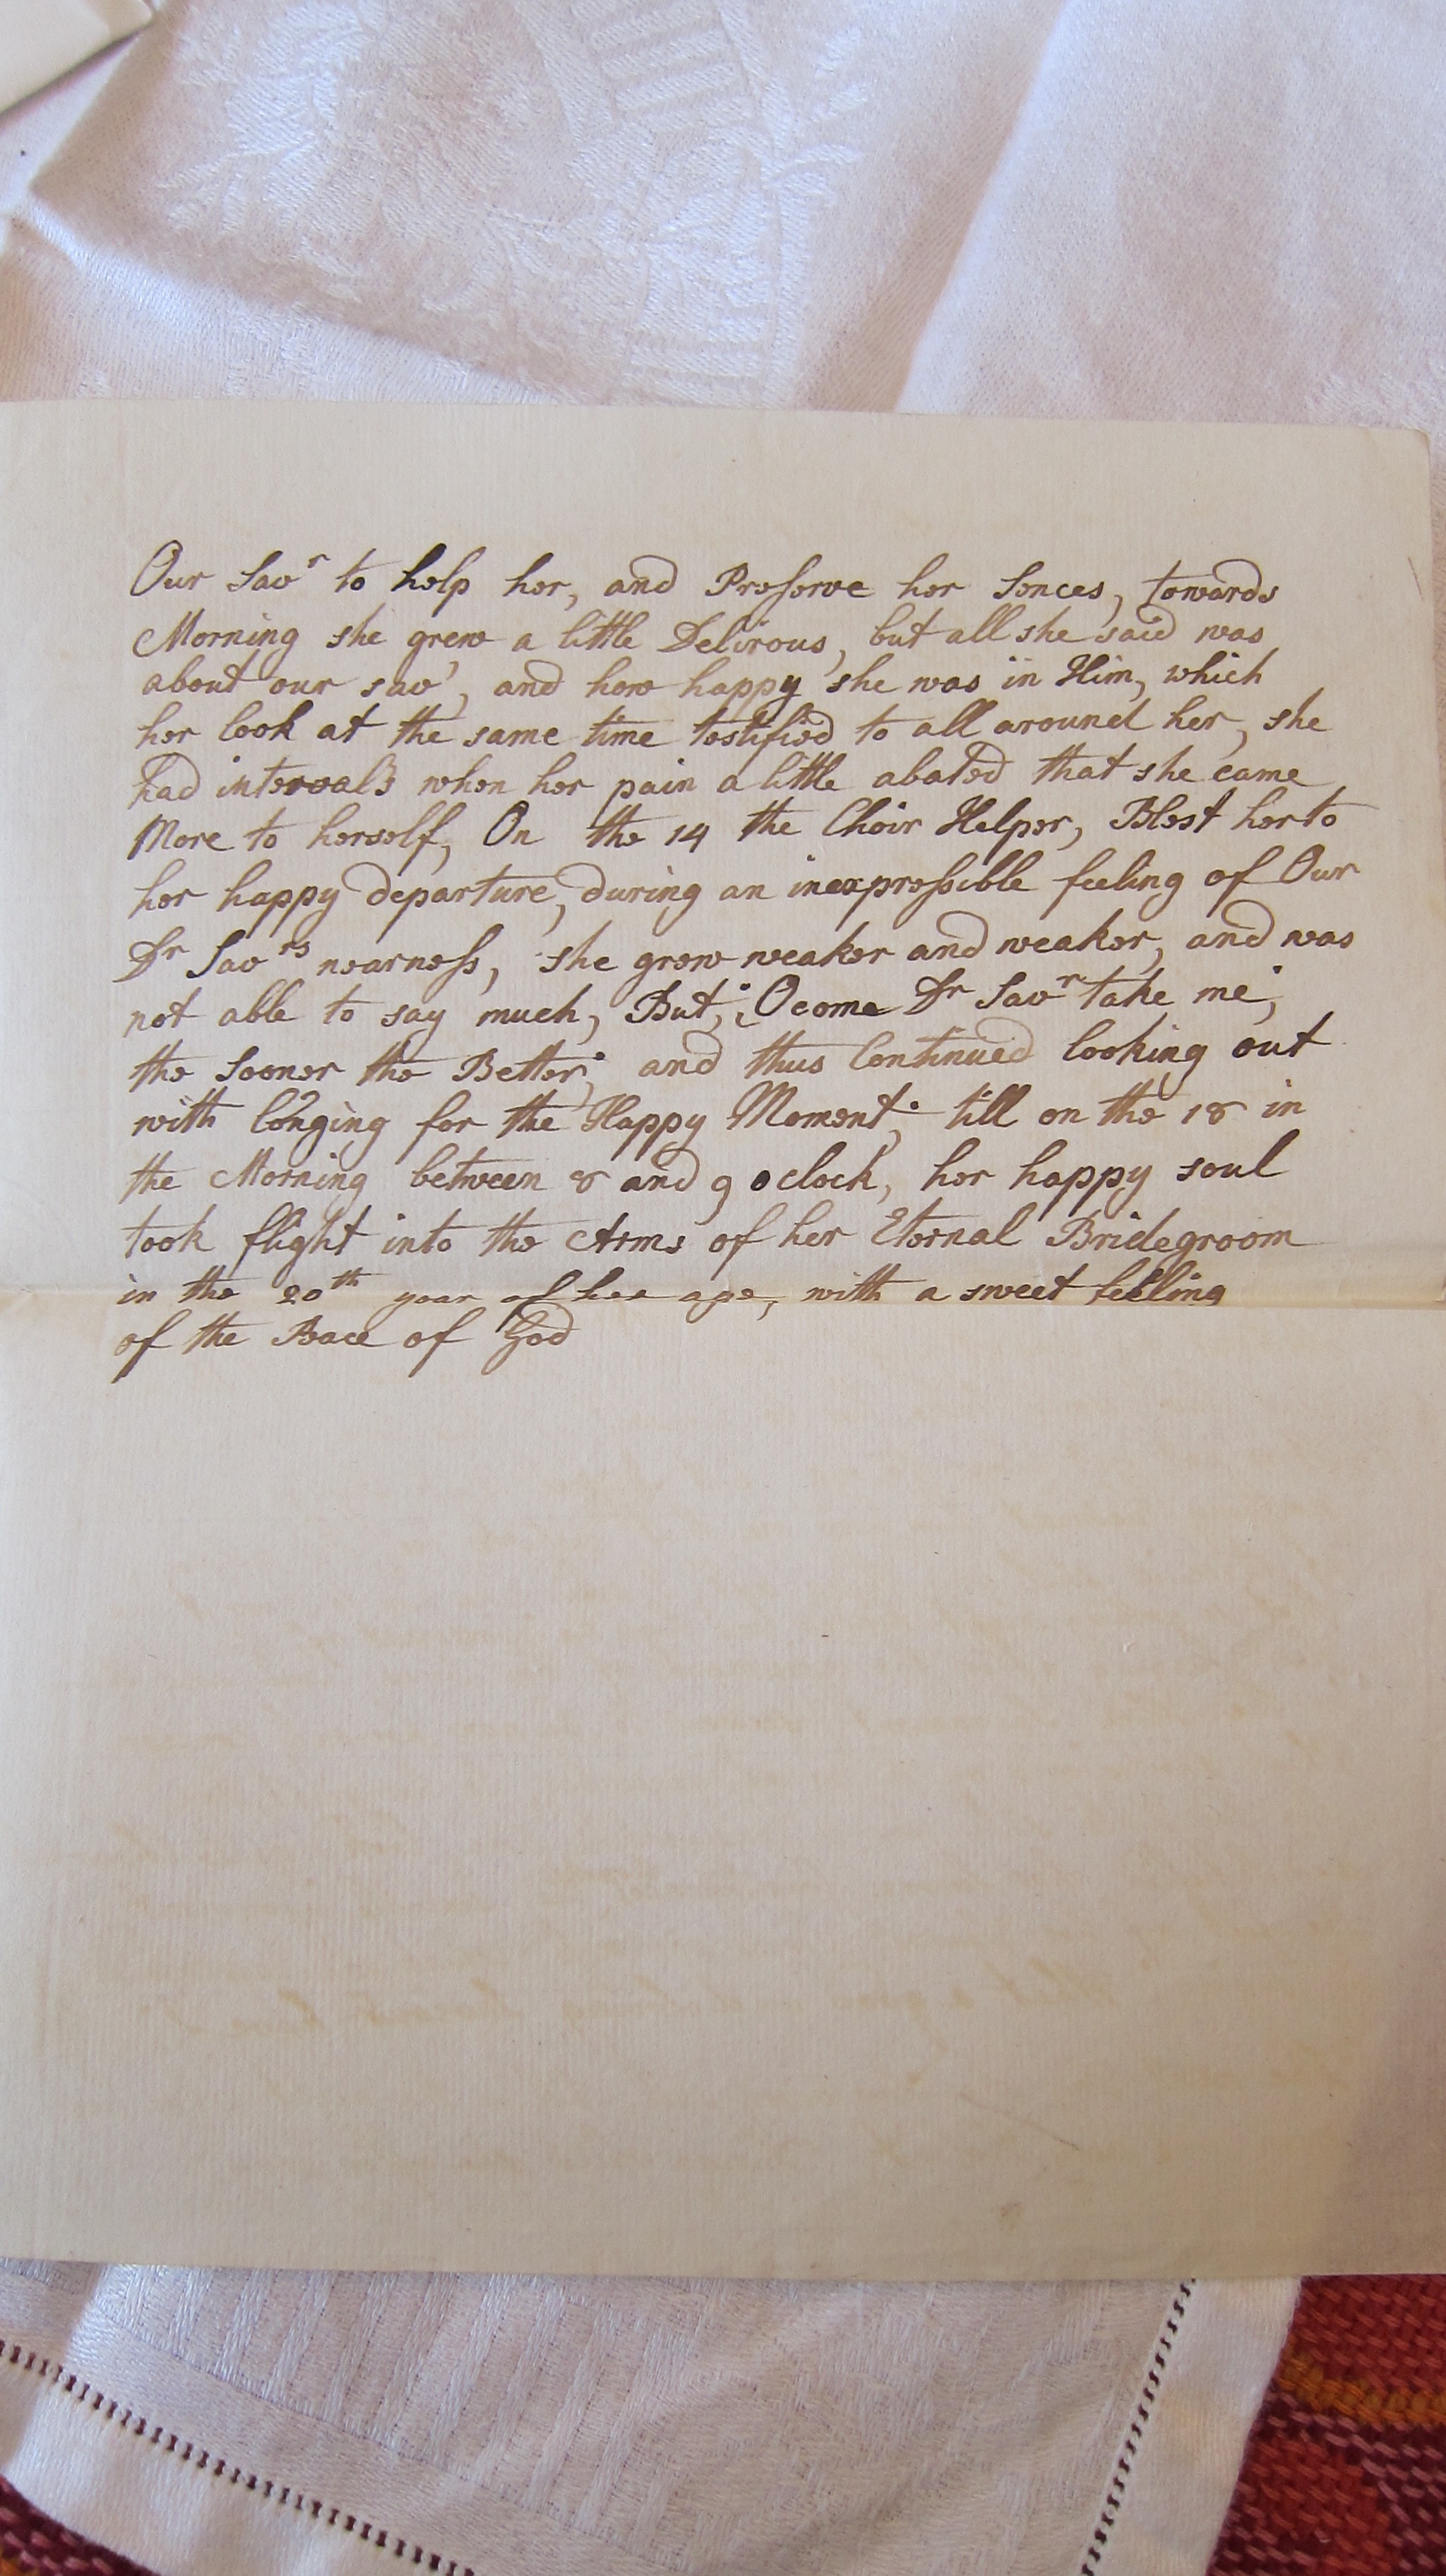 Our Savr to help her, and Preserve her Sences, towards
Morning she grew a little Delirous, but all she said was
about our savr, and how happy she was in Him, which
her look at the same time testified to all around her, she
had intervals when her pain a little abated that she came
More to herself, On the 14 the Choir Helper, Blest her to
her happy departure, during an inexpressible feeling of Our
Dr Savrs nearness, she grew weaker and weaker, and was
not able to say much, But; O come Dr Savr take me;
the Sooner the Better; and thus Continued looking out
with longing for the Happy Moment; till on the 18 in
the Morning between 8 and 9 oclock, her happy soul
took flight into the Arms of her Eternal Bridegroom
in the 20th year of her age, with a sweet feeling
of the Bace of God